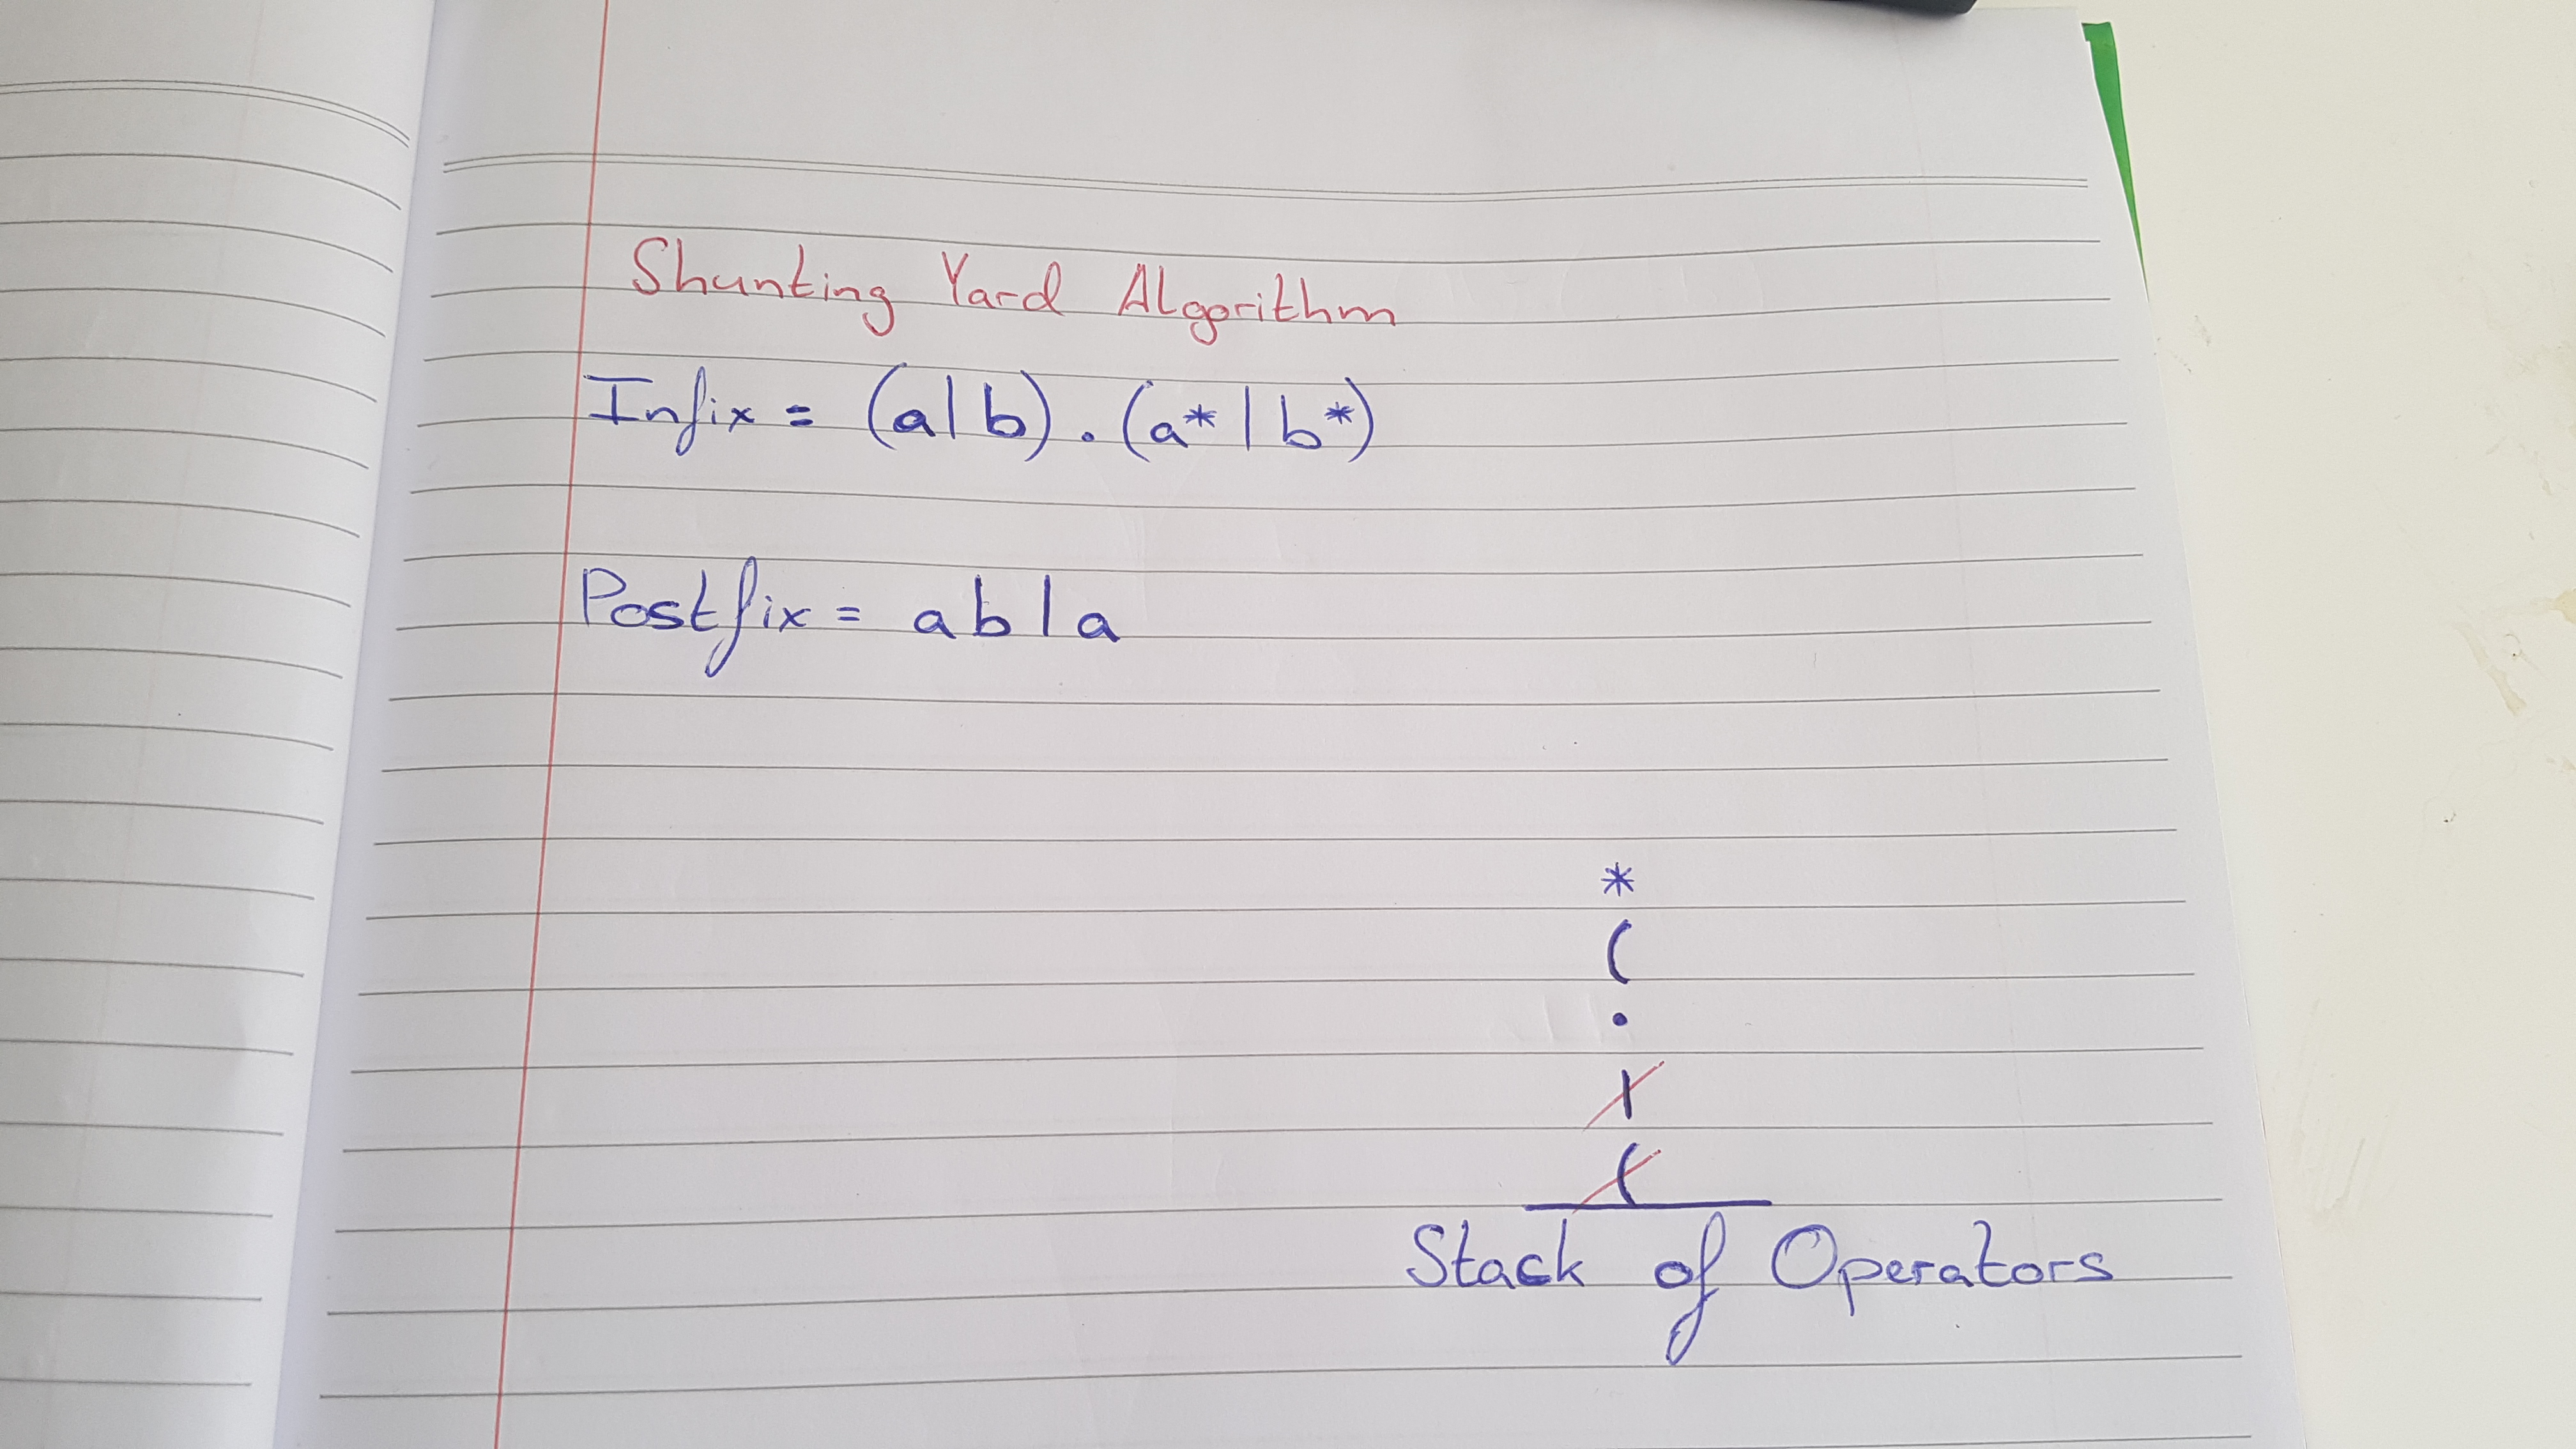 Shunting Yard Algorithm
Infix = (a|b).(a*|b*)
Postfix = ab|a
*
(
.
|
(
Stack of Operators